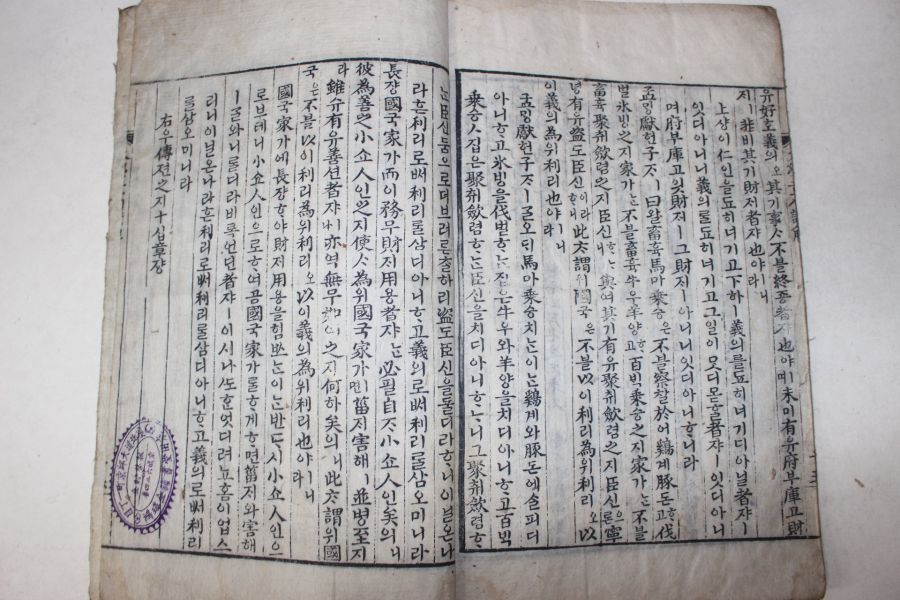 유好호義의오其기事ᄉᆞ不블終죵者쟈也야ㅣ며未미有유府부庫고財
ᄌᆡㅣ非비其기財ᄌᆡ者쟈也야ㅣ니라
上샹이仁인을됴히너기고下하ㅣ義의를됴히너기디아닐者쟈ㅣ
잇디아니니義의를됴히너기고그일이ᄆᆞᆺ디몯ᄒᆞᆯ者쟈ㅣ잇디아니
며府부庫고잇財ᄌᆡㅣ그財ᄌᆡㅣ아니니잇디아니ᄒᆞ니라
孟ᄆᆡᆼ獻헌子ᄌᆞㅣ曰왈畜휵馬마乘승은不블察찰於어雞계豚돈ᄒᆞ고伐
벌氷빙之지家가ᄂᆞᆫ不블畜휵牛우羊양ᄒᆞ고百ᄇᆡᆨ乘승之지家가ᄂᆞᆫ不블
畜휵聚취斂렴之지臣신ᄒᆞᄂᆞ니與여其기有유聚취斂렴之지臣신으론寧
녕有유盜도臣신이라ᄒᆞ니此ᄎᆞ謂위國국은不블以이利리爲위利리오以
이義의爲위利리也야ㅣ니라
孟ᄆᆡᆼ獻헌子ᄌᆞㅣᄀᆞᆯ오ᄃᆡ馬마乘승치ᄂᆞᆫ이ᄂᆞᆫ鷄계와豚돈에ᄉᆞᆯ피디
아니ᄒᆞ고氷빙을伐벌ᄒᆞᄂᆞᆫ집은牛우와羊양을치디아니ᄒᆞ고百ᄇᆡᆨ
乘승ㅅ집은聚취斂렴ᄒᆞᄂᆞᆫ臣신을치디아니ᄒᆞᄂᆞ니그聚취斂렴ᄒᆞ
ᄂᆞᆫ臣신둠으로더브러론ᄎᆞᆯ하리盜도臣신을둘디라ᄒᆞ니이닐온나
라ᄒᆞᆫ利리로ᄡᅥ利리ᄅᆞᆯ삼디아니ᄒᆞ고義의로ᄡᅥ利리ᄅᆞᆯ삼오미니라
長쟝國국家가而이務무財ᄌᆡ用용者쟈ᄂᆞᆫ必필自ᄌᆞ小쇼人인矣의니
彼爲善之小쇼人인之지使ᄉᆞ爲위國국家가ㅣ면菑ᄌᆡ害해ㅣ並병至지
라雖슈有유善션者쟈ㅣ나亦역無무如여之지何하矣의니此ᄎᆞ謂위國
국은不블以이利리爲위利리오以이義의爲위利리也야ㅣ니라
國국家가에長쟝ᄒᆞ야財ᄌᆡ用용을힘ᄡᅳᄂᆞᆫ이ᄂᆞᆫ반ᄃᆞ시小쇼人인으
로브테니小쇼人인으로ᄒᆞ여곰國국家가ᄅᆞᆯᄒᆞ게ᄒᆞ면菑ᄌᆡ와害해
ㅣᄀᆞᆯ와니를디라비록어딘者쟈ㅣ이시나ᄯᅩᄒᆞᆫ엇디려뇨홈이업스
리니이닐온나라ᄒᆞᆫ利리로ᄡᅥ利리ᄅᆞᆯ삼디아니ᄒᆞ고義의로ᄡᅥ利리
ᄅᆞᆯ삼오미니라
右우傳뎐之지十십章쟝